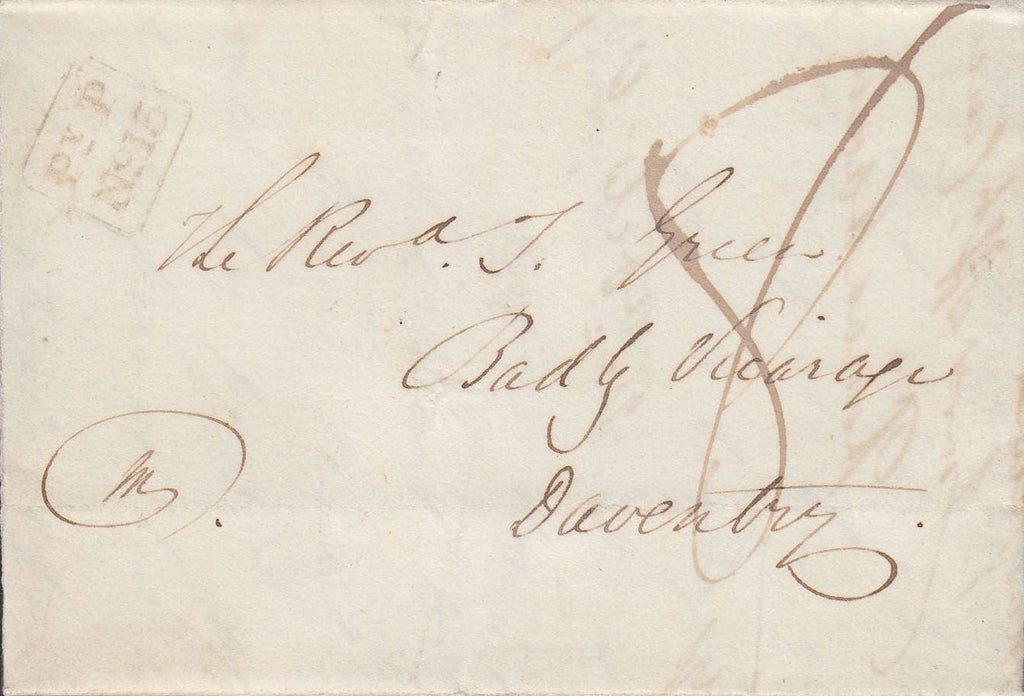 Py P
No 15
The Revd. T. Green
Badby Vicarage
Daventry.
8
m